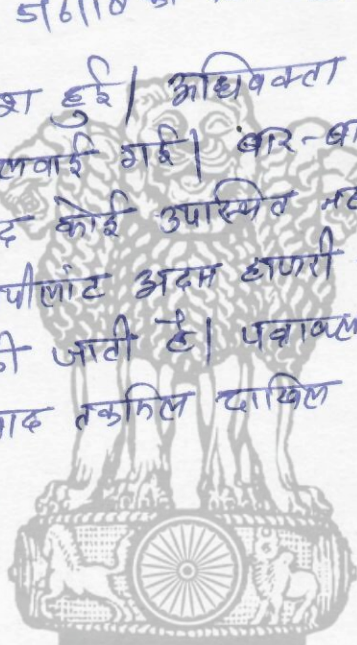 श हुई। अधिवक्ता
लवाई गई। बार-बा
द कोई उपस्थित नह
पीलांट अदम हाजरी
की जाती है। पत्रावल
बाद तकमिल दाखिल